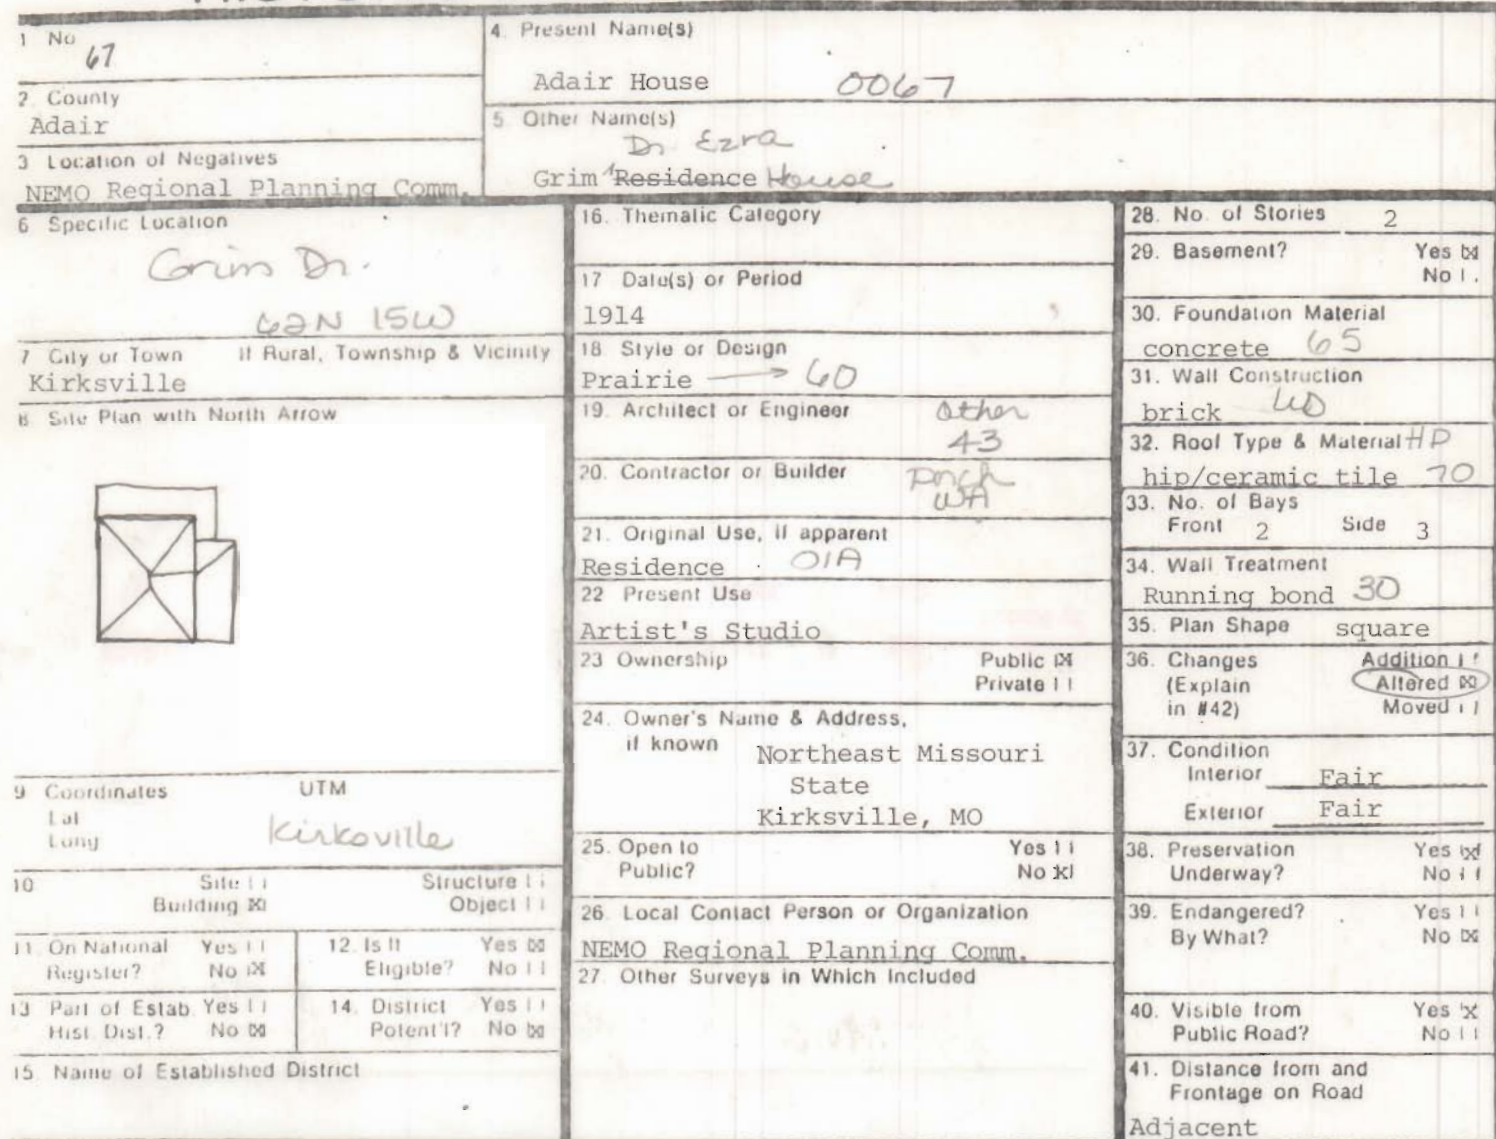 1 No
67
2. County
Adair
3 Location of Negatives
NEMO Regional Planning Comm.
4. Present Name(s)
Adair House 0067
5. Other Name(s)
Dr Ezra
Grim Residence House
6 Specific Location
Grim Dr.
62N 15W
7 City or Town If Rural, Township & Vicinity
Kirksville
8 Site Plan with North Arrow
9 Coordinates UTM
Lat
Long
Kirksville
10 Site
Structure
Building X
Object
11. On National Register? Yes
No X
12. Is It Eligible? Yes X
No
13 Part of Estab. Hist. Dist.? Yes
No X
14. District Potent'l? Yes
No X
15. Name of Established District
16. Thematic Category
17 Date(s) or Period
1914
18 Style or Design
Prairie → 60
19. Architect or Engineer
Other
43
20. Contractor or Builder
Porch
WA
21. Original Use, if apparent
Residence 01A
22 Present Use
Artist's Studio
23 Ownership Public X
Private
24. Owner's Name & Address,
if known
Northeast Missouri
State
Kirksville, MO
25. Open to Public? Yes
No x
26. Local Contact Person or Organization
NEMO Regional Planning Comm.
27. Other Surveys in Which Included
28. No. of Stories 2
29. Basement? Yes X
No
30. Foundation Material
concrete 65
31. Wall Construction
brick
32. Roof Type & Material HP
hip/ceramic tile 70
33. No. of Bays
Front 2 Side 3
34. Wall Treatment
Running bond 30
35. Plan Shape square
36. Changes Addition
(Explain Altered X
in #42) Moved
37. Condition
Interior Fair
Exterior Fair
38. Preservation Yes x
Underway? No
39. Endangered? Yes
By What? No X
40. Visible from Yes X
Public Road? No
41. Distance from and
Frontage on Road
Adjacent